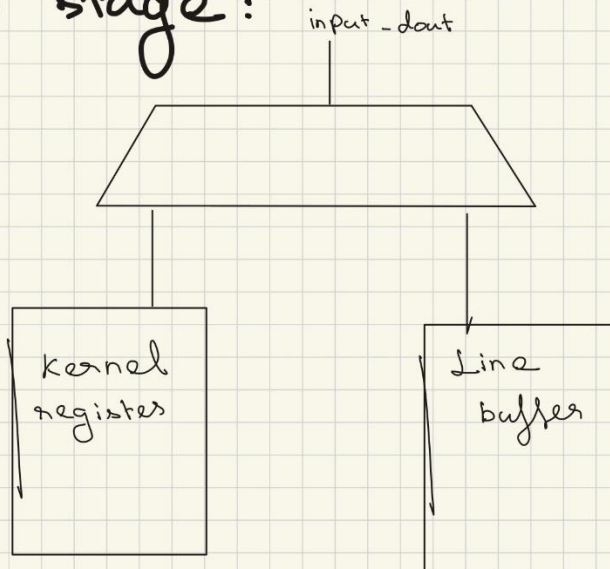 stage:
input_dout
kernel
register
Line
buffer